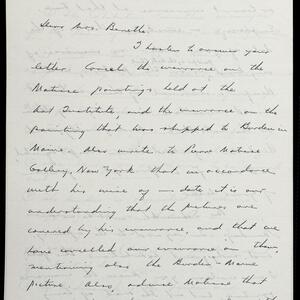 Dear Mrs. Benette:
I hasten to answer your
letter. Cancel the insurance on the
Matisse paintings held at the
Art Institute, and the insurance on the
painting that was shipped to Burden in
Maine. Also write to Pierre Matisse
Gallery, New York that in accordance
with his wire of — date, it is our
understanding that the pictures are
covered by his insurance, and that we
have cancelled our insurance on them,
mentioning also the Burden - Maine
picture. Also, advise Matisse that